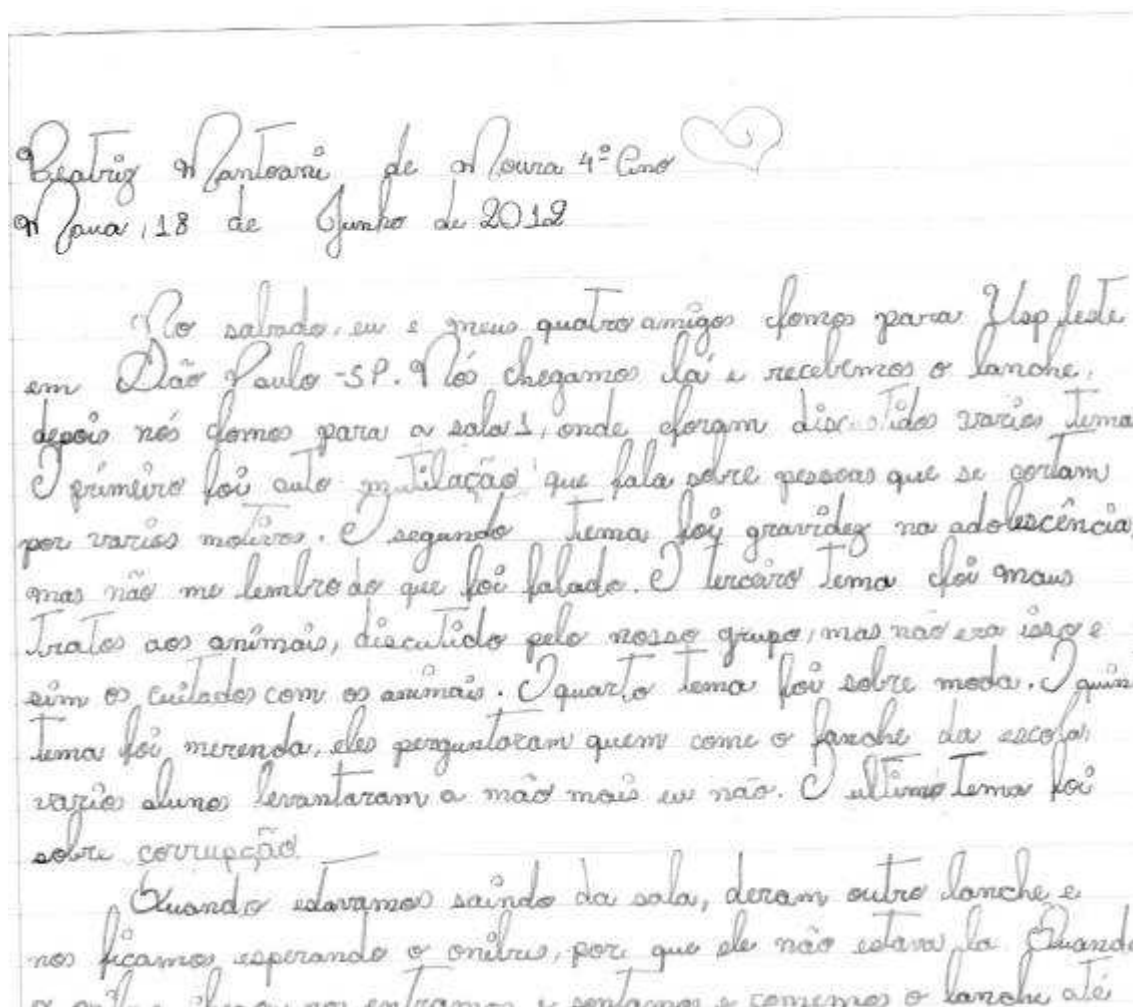 Beatriz Mantoani de Moura 4º Ano
Maua, 18 de Junho de 2012
No sabado, eu e meus quatro amigos fomos para Usp leste
em São Paulo -SP. Nós chegamos lá e recebemos o lanche,
depois nós fomos para a sala 1, onde foram discutidos varios tema
O primeiro foi auto mutilação que fala sobre pessoas que se cortam
por varios motivos. O segundo tema foi gravidez na adolescência,
mas não me lembro do que foi falado. O terceiro tema foi maus
tratos aos animais, discutido pelo nosso grupo, mas não era isso e
sim os cuitados com os animais. O quarto tema foi sobre moda. O quin
tema foi merenda, eles perguntaram quem come o lanche da escola
varios alunos levantaram a mão mais eu não. O ultimo tema foi
sobre corrupção.
Quando estavamos saindo da sala, deram outro lanche e
nos ficamos esperando o onibus, por que ele não estava la. Quando
o onibus chegou nos entramos e sentamos e comemos o lanche até